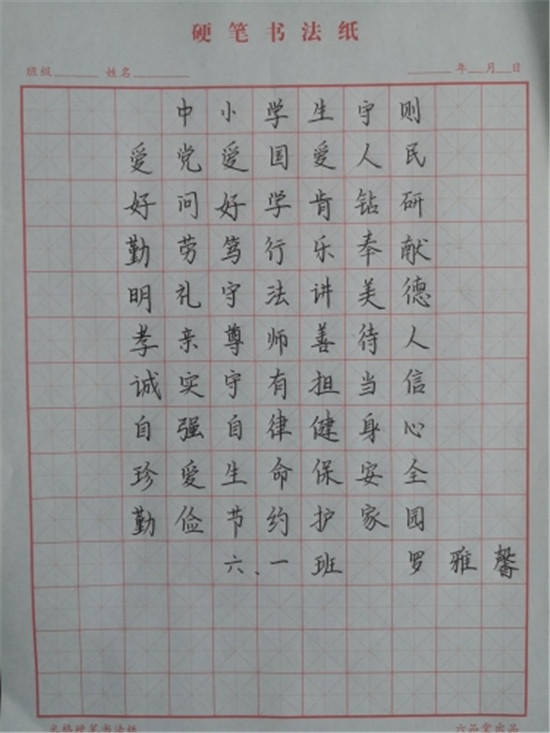 硬笔书法纸
班级 姓名 年 月 日
中小学生守则
爱党爱国爱人民
好问好学肯钻研
勤劳笃行乐奉献
明礼守法讲美德
孝亲尊师善待人
诚实守有担当信
自强自律健身心
珍爱生命保安全
勤俭节约护家园
六、一班 罗雅馨
六品堂出品